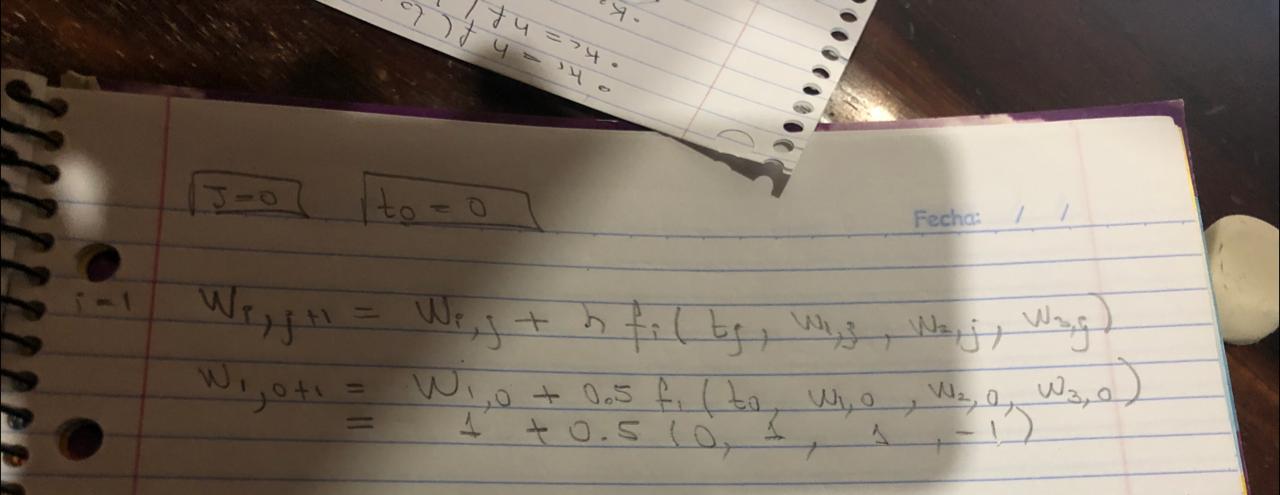 J=0 t₀ = 0
Fecha: / /
i=1 Wᵢ,ⱼ₊₁ = Wᵢ,ⱼ + h fᵢ(tⱼ, W₁,ⱼ, W₂,ⱼ, W₃,ⱼ)
W₁,₀₊₁ = W₁,₀ + 0.5 f₁(t₀, W₁,₀, W₂,₀, W₃,₀)
= 1 + 0.5 (0, 1, 1, -1)